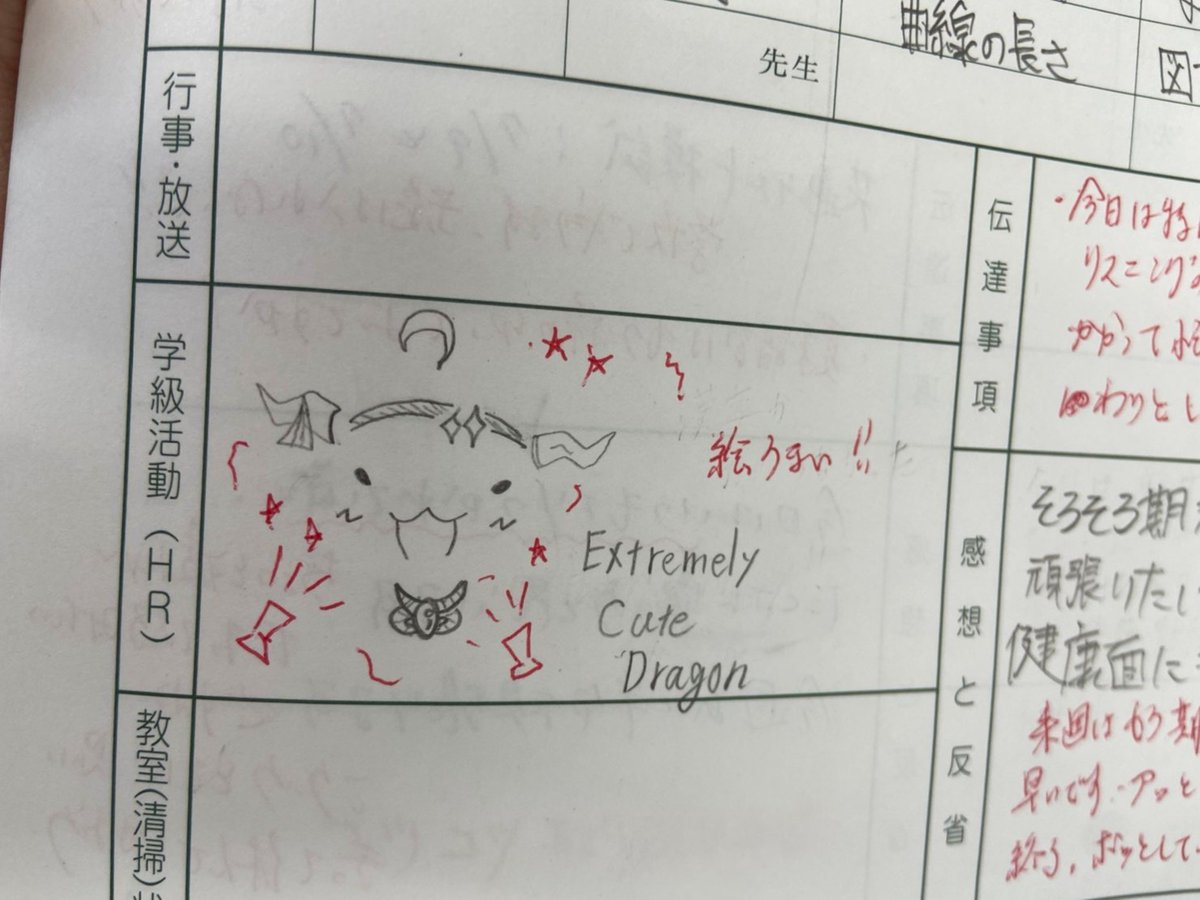 曲線の長さ
先生
図
行事・放送
伝達事項
・今日は特に
リスニング
かかって
わりと
学級活動（HR）
絵うまい!!
Extremely
Cute
Dragon
感想と反省
そろそろ期
頑張りたい
健康面に
来週はもう期
早いです。アッと
終る。ボッとして
教室（清掃）状